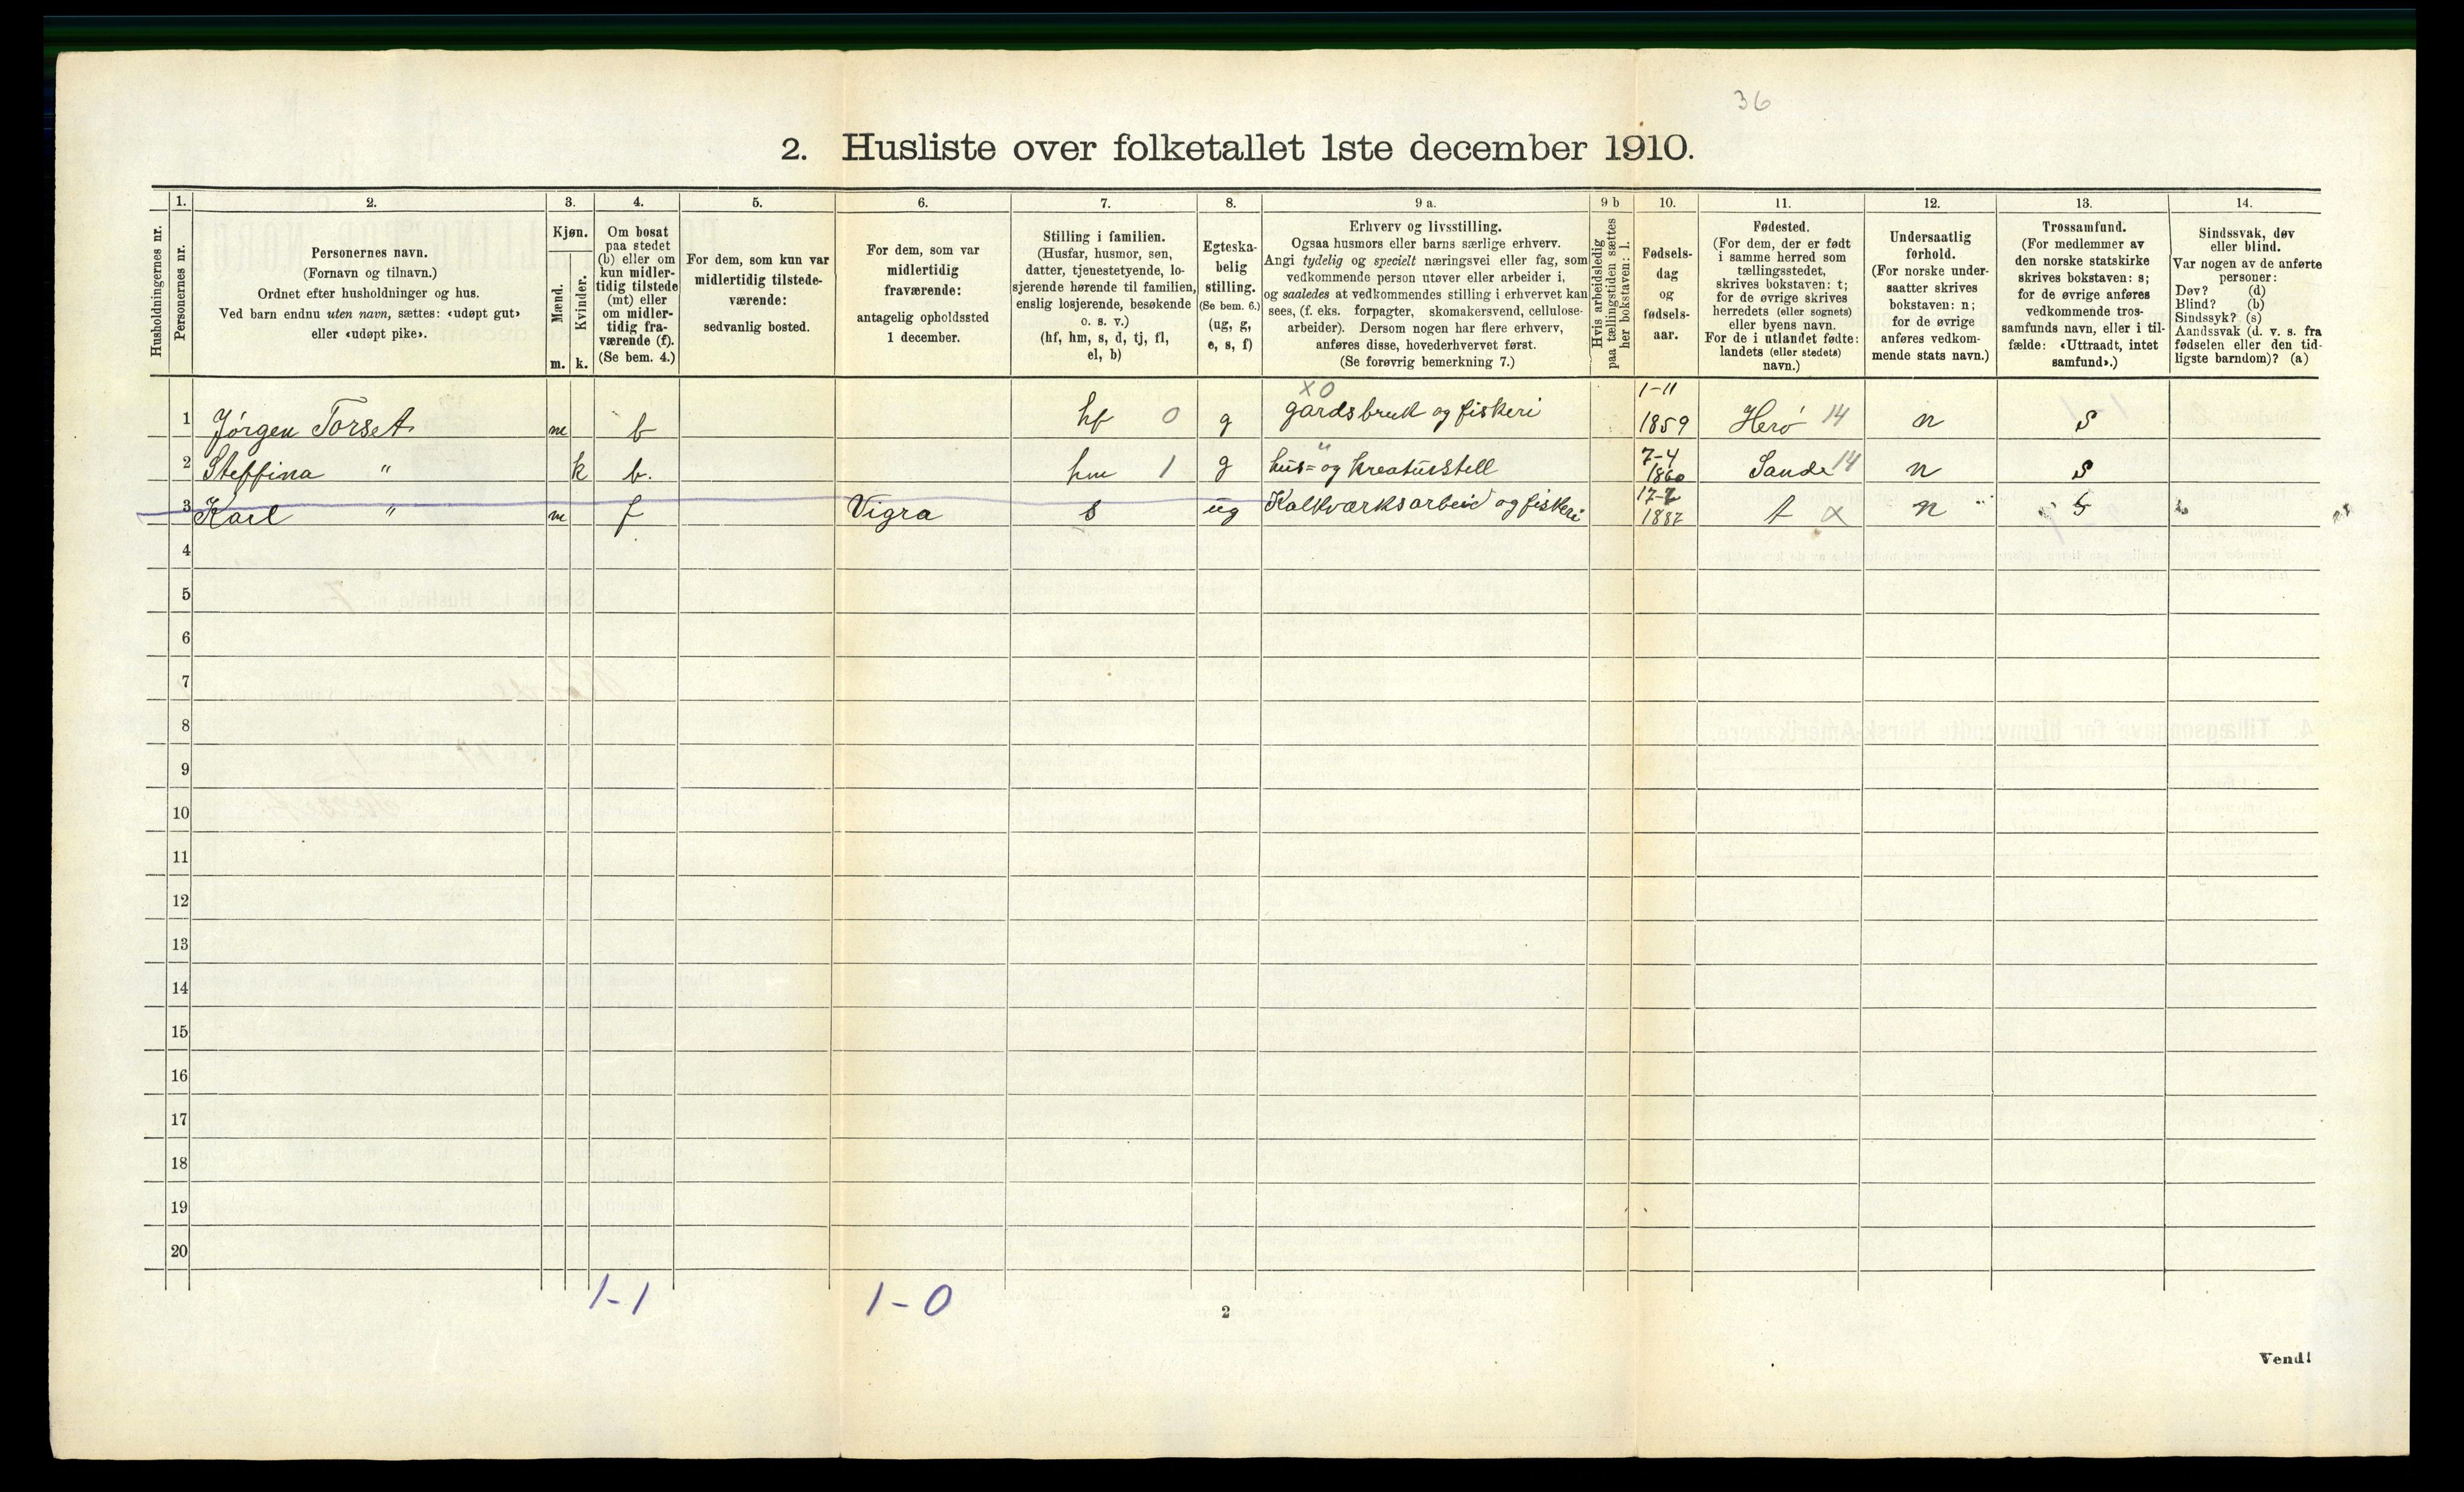 36
2. Husliste over folketallet 1ste december 1910.
Husholdningernes nr.
1.
Personernes nr.
2.
Personernes navn.
(Fornavn og tilnavn.)
Ordnet efter husholdninger og hus.
Ved barn endnu uten navn, sættes: «udøpt gut»
eller «udøpt pike».
3.
Kjøn.
Mænd.
Kvinder.
m. k.
4.
Om bosat
paa stedet
(b) eller om
kun midler-
tidig tilstede
(mt) eller
om midler-
tidig fra-
værende (f).
(Se bem. 4.)
5.
For dem, som kun var
midlertidig tilstede-
værende:
sedvanlig bosted.
6.
For dem, som var
midlertidig
fraværende:
antagelig opholdssted
1 december.
7.
Stilling i familien.
(Husfar, husmor, søn,
datter, tjenestetyende, lo-
sjerende hørende til familien,
enslig losjerende, besøkende
o. s. v.)
(hf, hm, s, d, tj, fl,
el, b)
8.
Egteska-
belig
stilling.
(Se bem. 6.)
(ug, g,
e, s, f)
9 a.
Erhverv og livsstilling.
Ogsaa husmors eller barns særlige erhverv.
Angi tydelig og specielt næringsvei eller fag, som
vedkommende person utøver eller arbeider i,
og saaledes at vedkommendes stilling i erhvervet kan
sees, (f. eks. forpagter, skomakersvend, cellulose-
arbeider). Dersom nogen har flere erhverv,
anføres disse, hovederhvervet først.
(Se forøvrig bemerkning 7.)
9 b
Hvis arbeidsledig
paa tællingstiden sættes
her bokstaven: l.
10.
Fødsels-
dag
og
fødsels-
aar.
11.
Fødested.
(For dem, der er født
i samme herred som
tællingsstedet,
skrives bokstaven: t;
for de øvrige skrives
herredets (eller sognets)
eller byens navn.
For de i utlandet fødte:
landets (eller stedets)
navn.)
12.
Undersaatlig
forhold.
(For norske under-
saatter skrives
bokstaven: n;
for de øvrige
anføres vedkom-
mende stats navn.)
13.
Trossamfund.
(For medlemmer av
den norske statskirke
skrives bokstaven: s;
for de øvrige anføres
vedkommende tros-
samfunds navn, eller i til-
fælde: «Uttraadt, intet
samfund».)
14.
Sindssvak, døv
eller blind.
Var nogen av de anførte
personer:
Døv? (d)
Blind? (b)
Sindssyk? (s)
Aandssvak (d. v. s. fra
fødselen eller den tid-
ligste barndom)? (a)
1 Jørgen Torset m b hf 0 g X0 gårdsbruk og fiskeri 1-11 1859 Herö 14 n S
2 Steffina " k b. hm 1 g " hus= og kreaturstell 7-4 1860 Sande 14 n S
3 Karl " m f Vigra s ug Kalkværksarbeid og fiskeri 1887 t x n S
4
5
6
7
8
9
10
11
12
13
14
15
16
17
18
19
20
1-1 1-0
2
Vend!